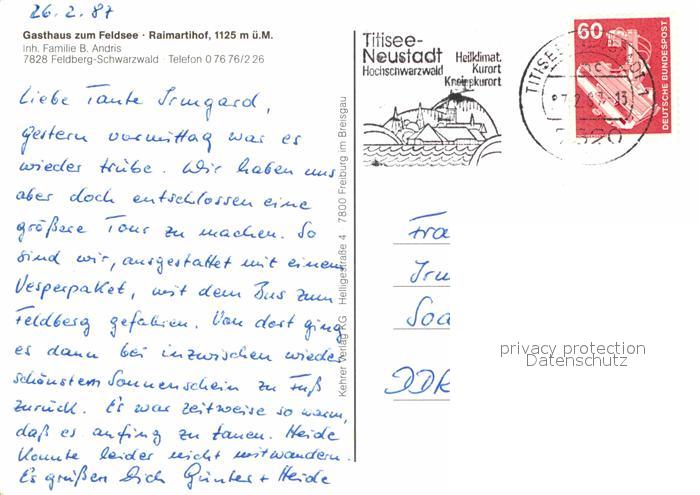 26.2.87
Gasthaus zum Feldsee · Raimartihof, 1125 m ü.M.
Inh. Familie B. Andris
7828 Feldberg-Schwarzwald · Telefon 0 76 76/2 26
Liebe Tante Irmgard,
gestern vormittag war es
wieder trübe. Wir haben uns
aber doch entschlossen eine
größere Tour zu machen. So
sind wir, ausgestattet mit einem
Vesperpaket, mit dem Bus zum
Feldberg gefahren. Von dort ging
es dann bei inzwischen wieder
schönstem Sonnenschein zu Fuß
zurück. Es war zeitweise so warm,
daß es anfing zu tauen. Heide
konnte leider nicht mitwandern.
Es grüßen Dich Günter + Heide
Kehrer Verlag KG · Heiligestraße 4 · 7800 Freiburg im Breisgau
Titisee-
Neustadt
Hochschwarzwald
Heilklimat.
Kurort
Kneippkurort
TITISEE-
7820
60
DEUTSCHE BUNDESPOST
Fra
Irm
Soa
DDR
privacy protection
Datenschutz